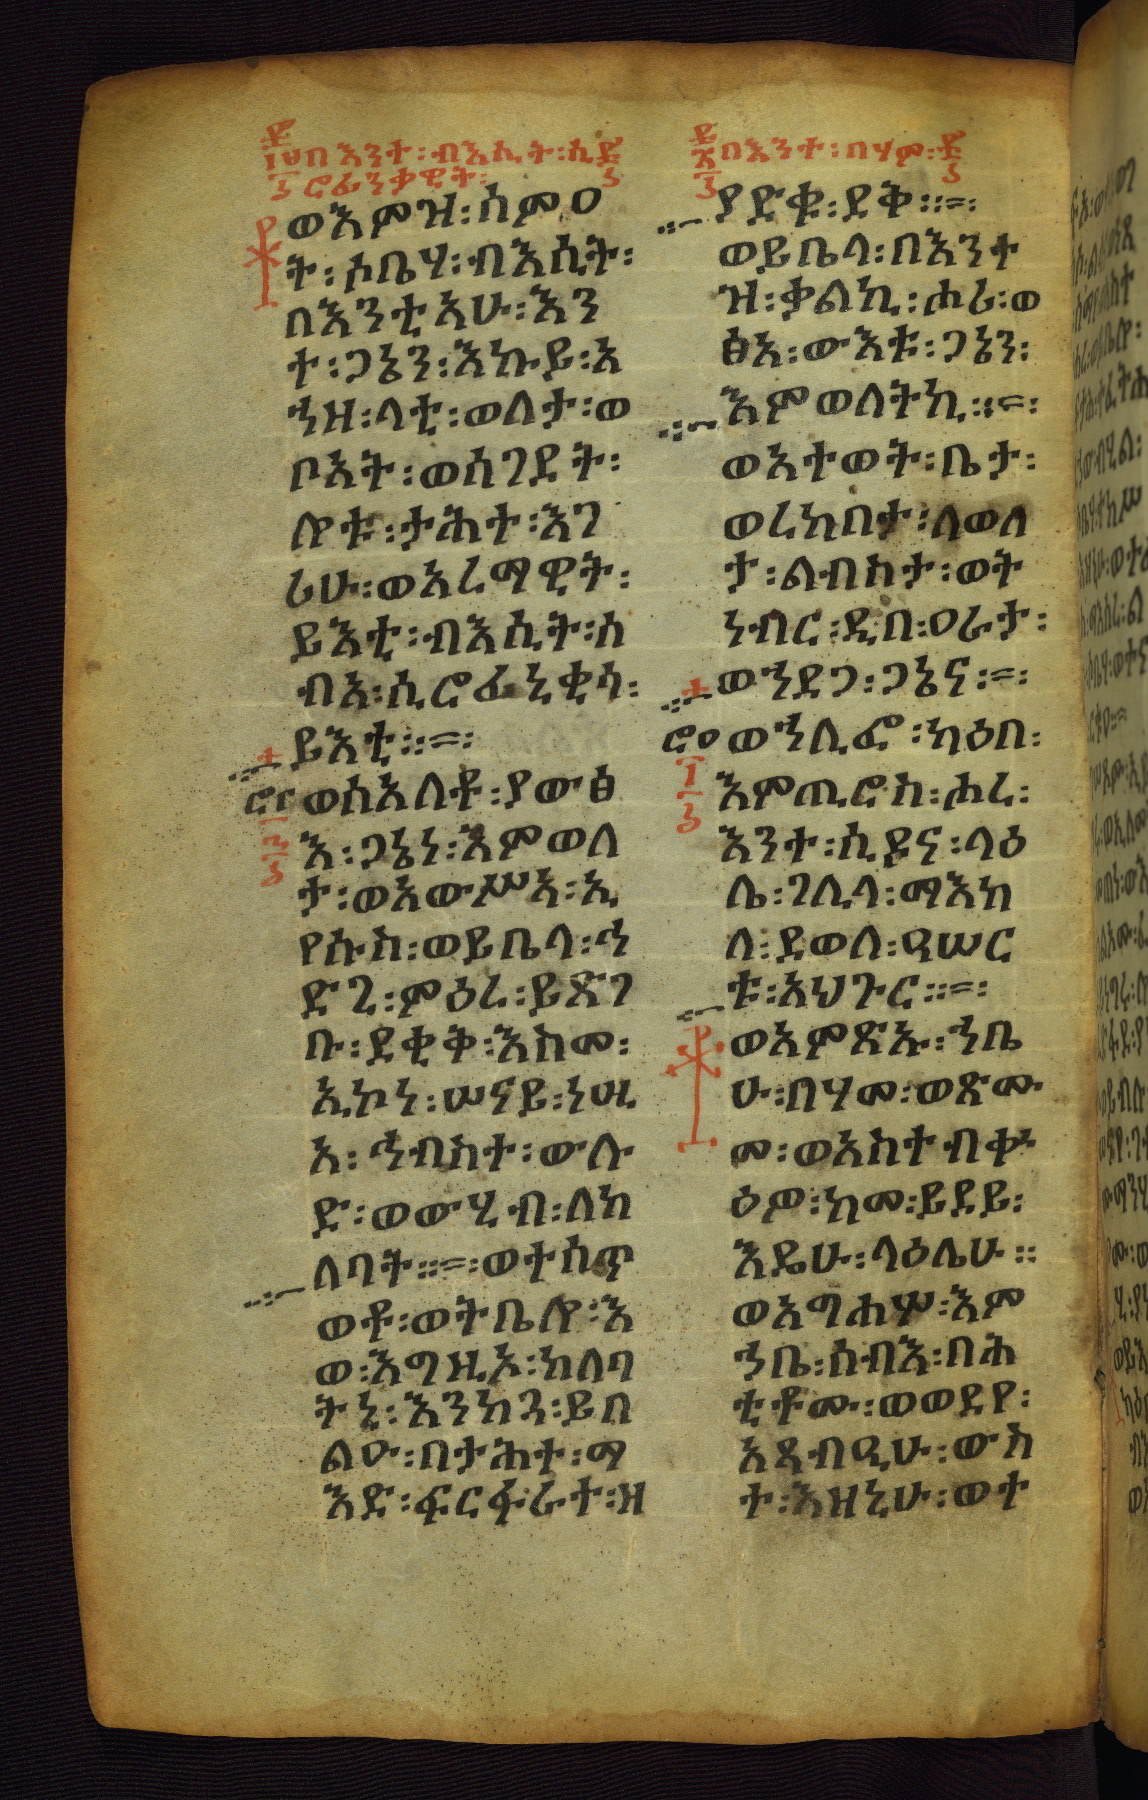 በእንተ፡ብእሲት፡ሲ
ሮፊንቃዊት፡
ወእምዝ፡ሰምዐ
ት፡ሶቤሃ፡ብእሲት፡
በእንቲአሁ፡እን
ተ፡ጋኔን፡እኩይ፡አ
ኀዘ፡ላቲ፡ወለታ፡ወ
ቦአት፡ወሰገደት፡
ሎቱ፡ታሕተ፡እገ
ሪሁ፡ወአረማዊት፡
ይእቲ፡ብእሲት፡ሰ
ብአ፡ሲሮፊኒቂሳ፡
ይእቲ።=፡
ወሰአለቶ፡ያውፅ
እ፡ጋኔነ፡እምወለ
ታ፡ወአውሥአ፡ኢ
የሱስ፡ወይቤላ፡ኀ
ድጊ፡ምዕረ፡ይጽገ
ቡ፡ደቂቅ፡እስመ፡
ኢኮነ፡ሠናይ፡ነሢ
አ፡ኅብስተ፡ውሉ
ድ፡ወውሂብ፡ለከ
ለባት።=፡ወተሰጥ
ወቶ፡ወትቤሎ፡እ
ወ፡እግዚኦ፡ከለባ
ትኒ፡እንከጓ፡ይበ
ልዑ፡በታሕተ፡ማ
እድ፡ፍርፋራተ፡ዘ
በእንተ፡በሃም፡
ያድቁ፡ደቅ።=፡
ወይቤላ፡በእንተ
ዝ፡ቃልኪ፡ሑሪ፡ወ
ፅአ፡ውእቱ፡ጋኔን፡
እምወለትኪ።=፡
ወአተወት፡ቤታ፡
ወረከበታ፡ለወለ
ታ፡ልብስታ፡ወት
ነብር፡ዲበ፡ዐራታ፡
ወኀደጋ፡ጋኔና፡=፡
ወኀሊፎ፡ካዕበ፡
እምጢሮስ፡ሖረ፡
እንተ፡ሲዶና፡ላዕ
ሌ፡ገሊላ፡ማእከ
ለ፡ደወለ፡ዓሠር
ቱ፡አህጉር።=፡
ወአምጽኡ፡ኀቤ
ሁ፡በሃመ፡ወጽሙ
መ፡ወአስተብቍ
ዕዎ፡ከመ፡ይደይ፡
እዴሁ፡ላዕሌሁ።
ወአግሐሦ፡እም
ኀቤ፡ሰብእ፡በሕ
ቲቶሙ፡ወወደየ፡
አጻብዒሁ፡ውስ
ተ፡እዘኒሁ፡ወተ